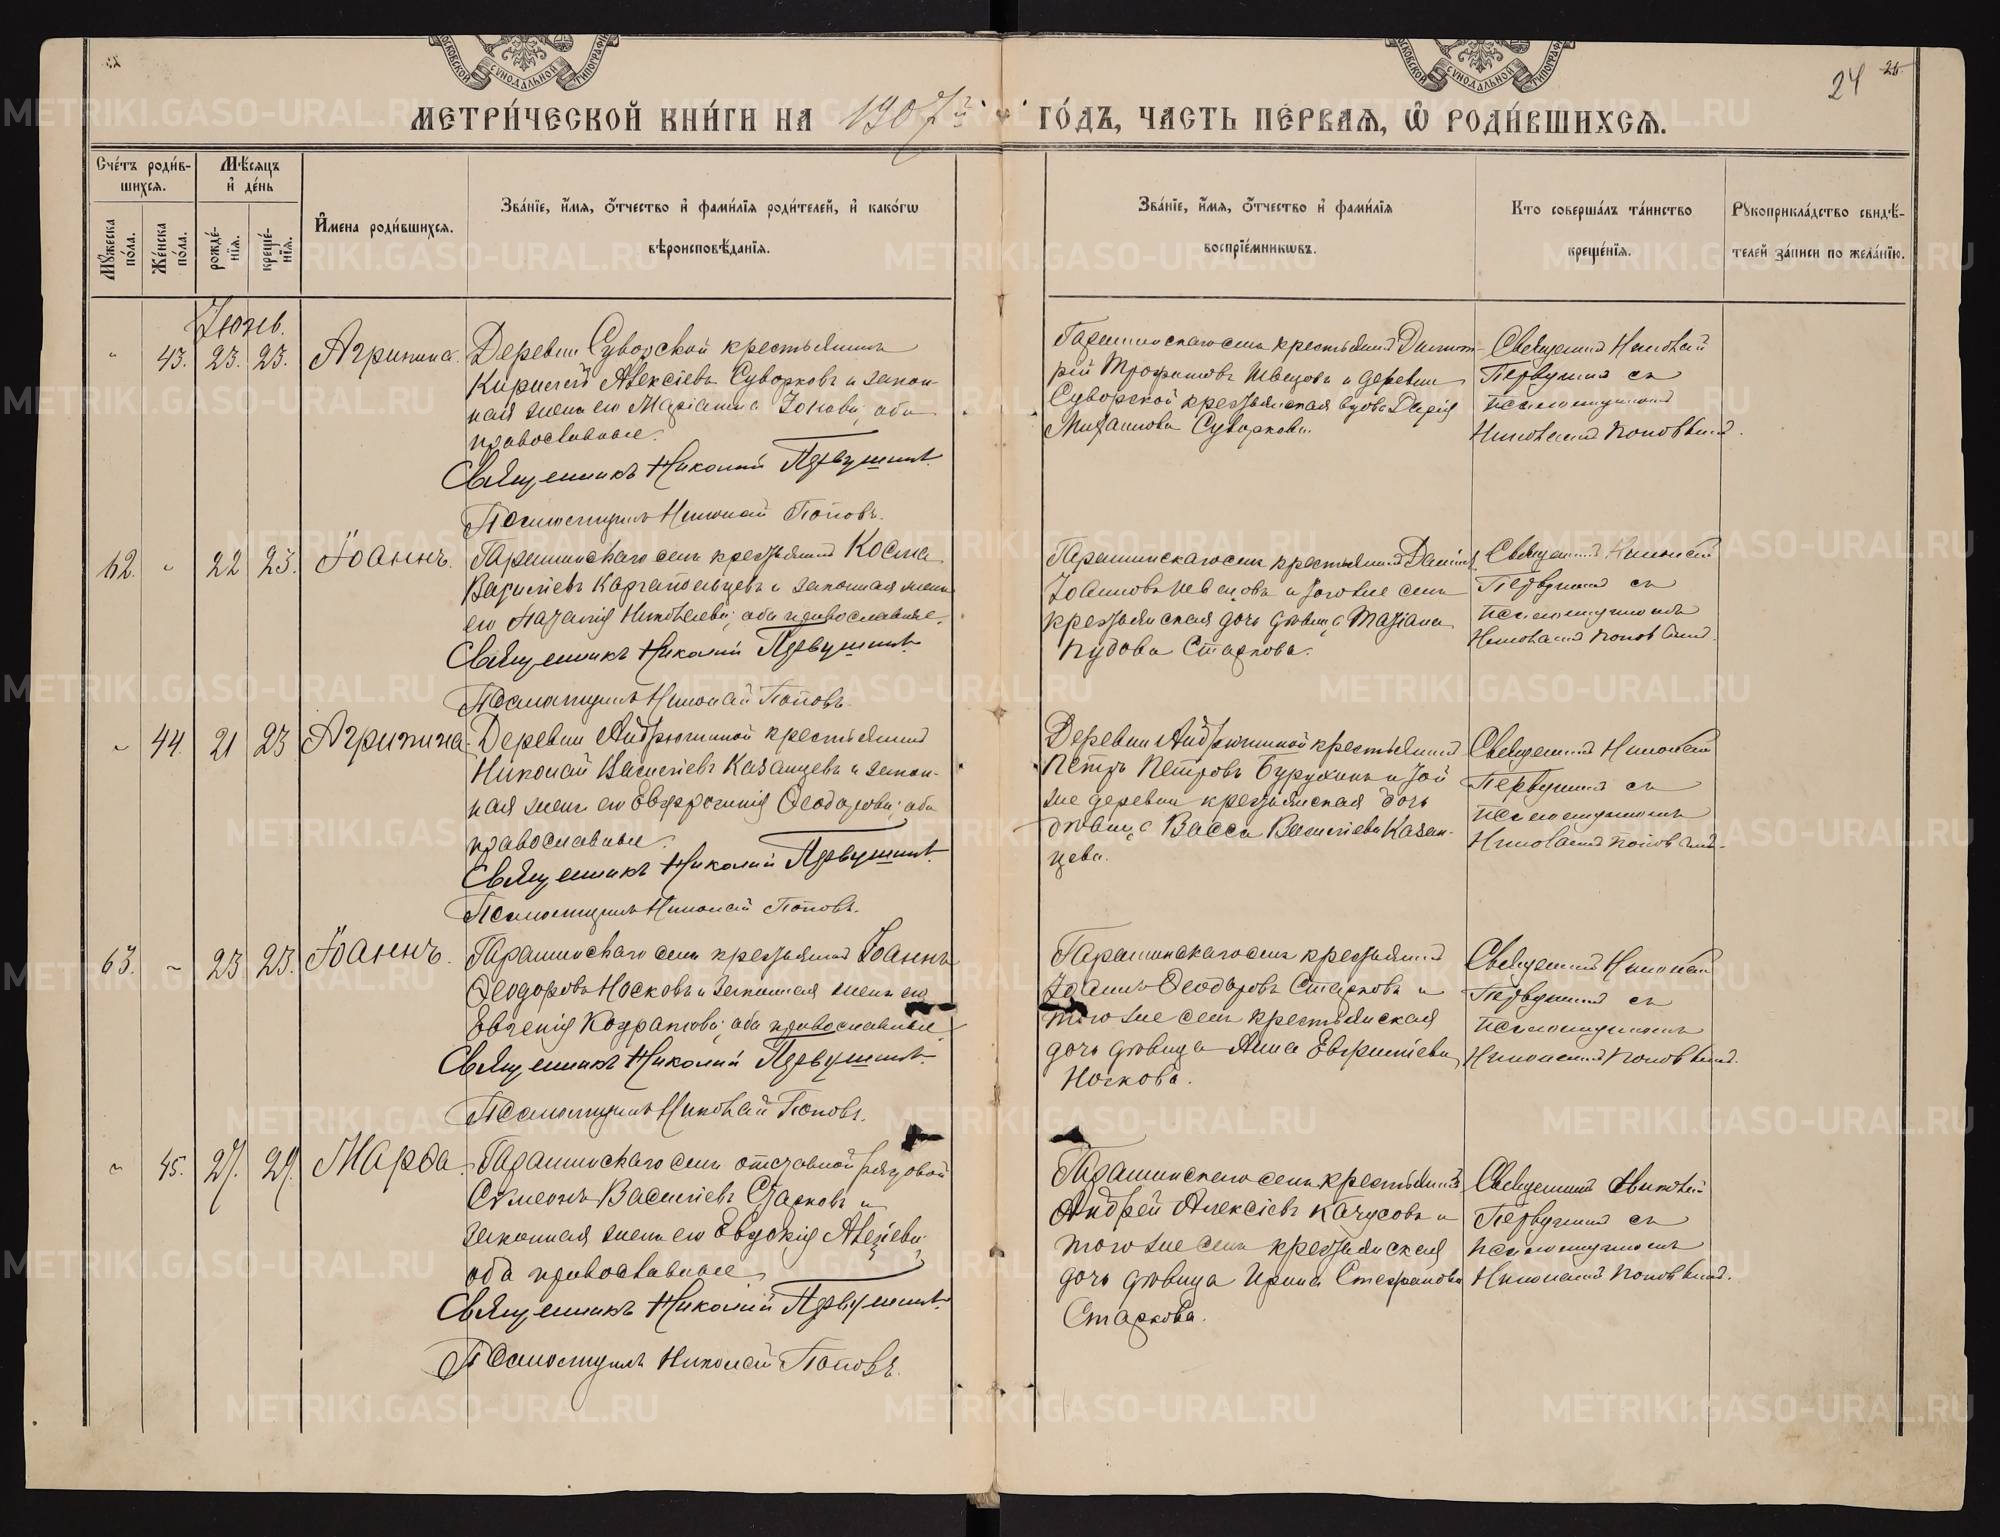 МЕТРИ́ЧЕСКОЙ КНИ́ГИ НА 1907й ГО́ДЪ, ЧАСТЬ ПЕ́РВАЯ, Ѡ҆ РОДИ́ВШИХСѦ.
24 25
Сче́тъ роди́в-
шихсѧ.
Мꙋ́жеска
по́ла.
Же́нска
по́ла.
Мѣ́сѧцъ
и҆ де́нь
рожде́-
нїѧ.
креще́-
нїѧ.
И҆мена роди́вшихсѧ.
Зва́нїе, и҆́мѧ, ѻ҆́тчество и҆ фами́лїѧ роди́телей, и҆ како́гѡ
вѣроисповѣ́данїѧ.
Зва́нїе, и҆́мѧ, ѻ҆́тчество и҆ фами́лїѧ
воспрїе́мникѡвъ.
Кто соверша́лъ та́инство
креще́нїѧ.
Рꙋкоприкла́дство свидѣ́-
телей за́писи по жела́нїю.
Іюнь.
43. 23. 23. Агрипина.
Деревни Суворской крестьянинъ
Кириллъ Алексіевъ Суворковъ и закон-
ная жена его Маріанна Іонова; оба
православные.
Священникъ Николай Первушинъ.
Псаломщикъ Николай Поповъ.
Гарашинскаго села крестьянинъ Димит-
рій Трофимовъ Швецовъ и деревни
Суворской крестьянская вдова Дарія
Михаилова Суворкова.
Священникъ Николай
Первушинъ съ
псаломщикомъ
Николаемъ Поповымъ.
62. 22 23. Іоаннъ.
Гарашинскаго села крестьянинъ Косма
Василіевъ Каргапольцевъ и законная жена
его Наталія Николаева; оба православные.
Священникъ Николай Первушинъ
Псаломщикъ Николай Поповъ.
Гарашинскаго села крестьянинъ Даніилъ
Іоанновъ Швецовъ и того же села
крестьянская дочь дѣвица Татіана
Кудова Старкова.
Священникъ Николай
Первушинъ съ
псаломщикомъ
Николаемъ Поповымъ.
44. 21 23 Агрипина.
Деревни Андрюшиной крестьянинъ
Николай Василіевъ Казанцевъ и закон-
ная жена его Евфросинія Ѳеодорова; оба
православные.
Священникъ Николай Первушинъ.
Псаломщикъ Николай Поповъ.
Деревни Андрюшиной крестьянинъ
Петръ Петровъ Бурухинъ и той
же деревни крестьянская дочь
дѣвица Васса Василіева Казан-
цева.
Священникъ Николай
Первушинъ съ
псаломщикомъ
Николаемъ Поповымъ.
63. 23 23. Іоаннъ.
Гарашинскаго села крестьянинъ Іоаннъ
Ѳеодоровъ Носковъ и законная жена его
Евгенія Кодратова; оба православные.
Священникъ Николай Первушинъ.
Псаломщикъ Николай Поповъ.
Гарашинскаго села крестьянинъ
Іоаннъ Ѳеодоровъ Старковъ и
того же села крестьянская
дочь дѣвица Анна
Носкова.
Священникъ Николай
Первушинъ съ
псаломщикомъ
Николаемъ Поповымъ.
45. 27. 29. Марѳа.
Гарашинскаго села отставной рядовой
Симеонъ Василіевъ Старковъ и
законная жена его Евдокія
оба православные.
Священникъ Николай Первушинъ.
Псаломщикъ Николай Поповъ.
Гарашинскаго села крестьянинъ
Андрей Алексіевъ Качусовъ и
того же села крестьянская
дочь дѣвица Ирина Стефанова
Старкова.
Священникъ Николай
Первушинъ съ
псаломщикомъ
Николаемъ Поповымъ.
METRIKI.GASO-URAL.RU